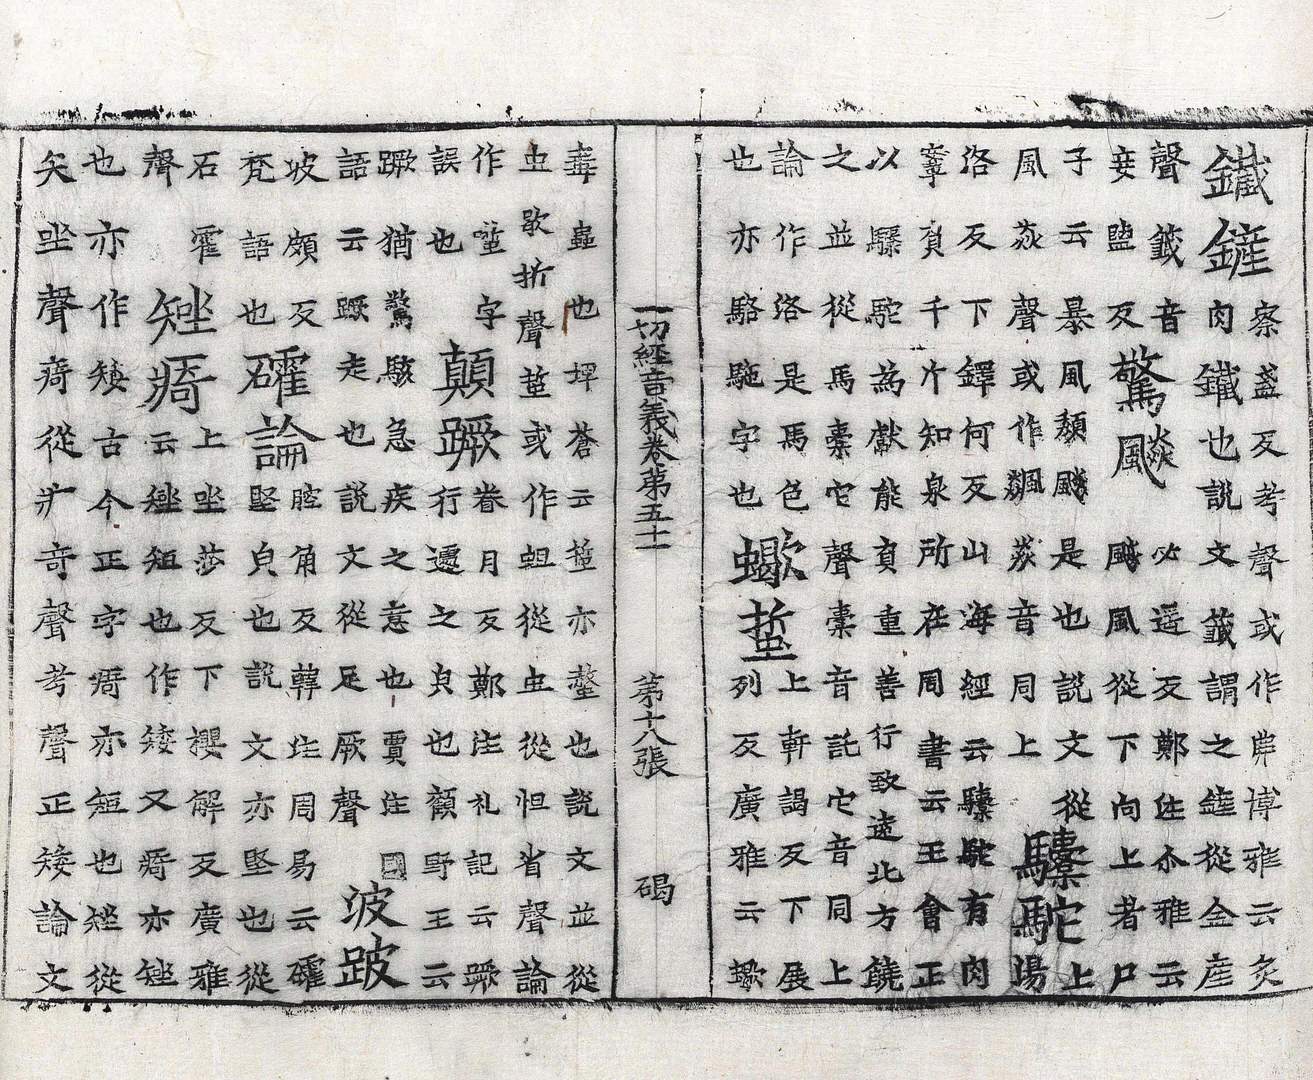 鐵鏟
察盞反考聲或作丳博雅云灸
肉鐵也說文籤謂之鏟從金產
聲籤音
妾監反
驚飇
必遥反鄭注尒雅云
飇風從下向上者尸
子云暴風頹飇是也說文從
風猋聲或作飆猋音同上
驝駝
上
湯
洛反下鐸何反山海經云驝駝有肉
鞌負千斤知泉所在周書云王會正
以騾駝為獻能負重善行致遠北方饒
之並從馬橐它聲橐音託它音同上
論作洛是馬色
也亦駱駞字也
蠍蜇
上軒謁反下展
列反廣雅云蠍
一切經音義卷第五十一　第十八張　碣
毒蟲也埤蒼云蜇亦螫也說文並從
虫歇折聲蜇或作蛆從虫從怛省聲論
作字
誤也
顛蹶
眷月反鄭注礼記云蹶
行遽之皃也顧野王云
蹶猶驚駭急疾之意也賈注國
語云蹶走也說文從足厥聲
波跛
坡頗反
梵語也
礭論
腔角反韓注周易云礭
堅皃也說文亦堅也從
石霍
聲
矬㾨
上坐莎反下櫻解反廣雅
云矬短也作矮又㾨亦矬
也亦作矮古今正字㾨亦短也矬從
矢坐聲㾨從疒奇聲考聲正矮論文